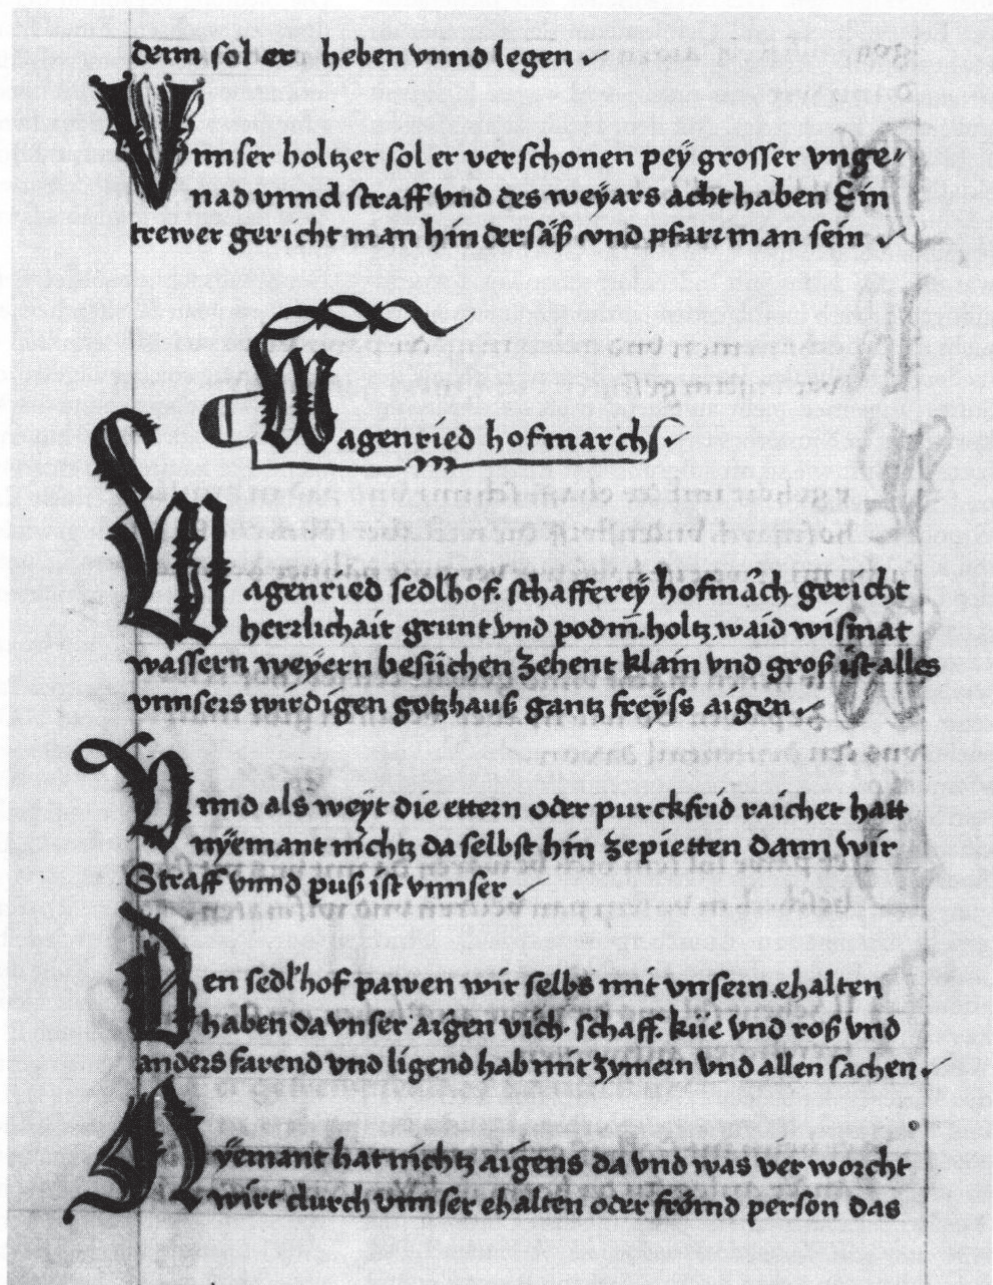 denn sol er heben vnnd legen
Vnnser holtzer sol er verschonen peÿ grosser vnge-
nad vnnd straff vnd des weÿars acht haben Ein
trewer gericht man hindersäß vnd pfarrman sein
Wagenried hofmarchs
Wagenried sedlhof. schafferey hofmarch gericht
herrlichait grunt vnd podm. holtz waid wismat
wassern weÿern besüchen zehent klain vnd groß ist alles
vnnsers wirdigen gotzhauß gantz freÿss aigen.
Vnnd als weÿt die ettern oder purckfrid raichet hatt
nÿemant nichtz da selbst hin zepietten dann wir
Straff vnnd puß ist vnnser
Den sedlhof pawen wir selbs mit vnsern ehalten
haben da vnser aigen vich. schaff. küe vnd roß vnd
anders farend vnd ligend hab mit zymern vnd allen sachen
Nÿemant hat nichtz aigens da vnd was ver worcht
wirt durch vnnser ehalten oder frömd person das